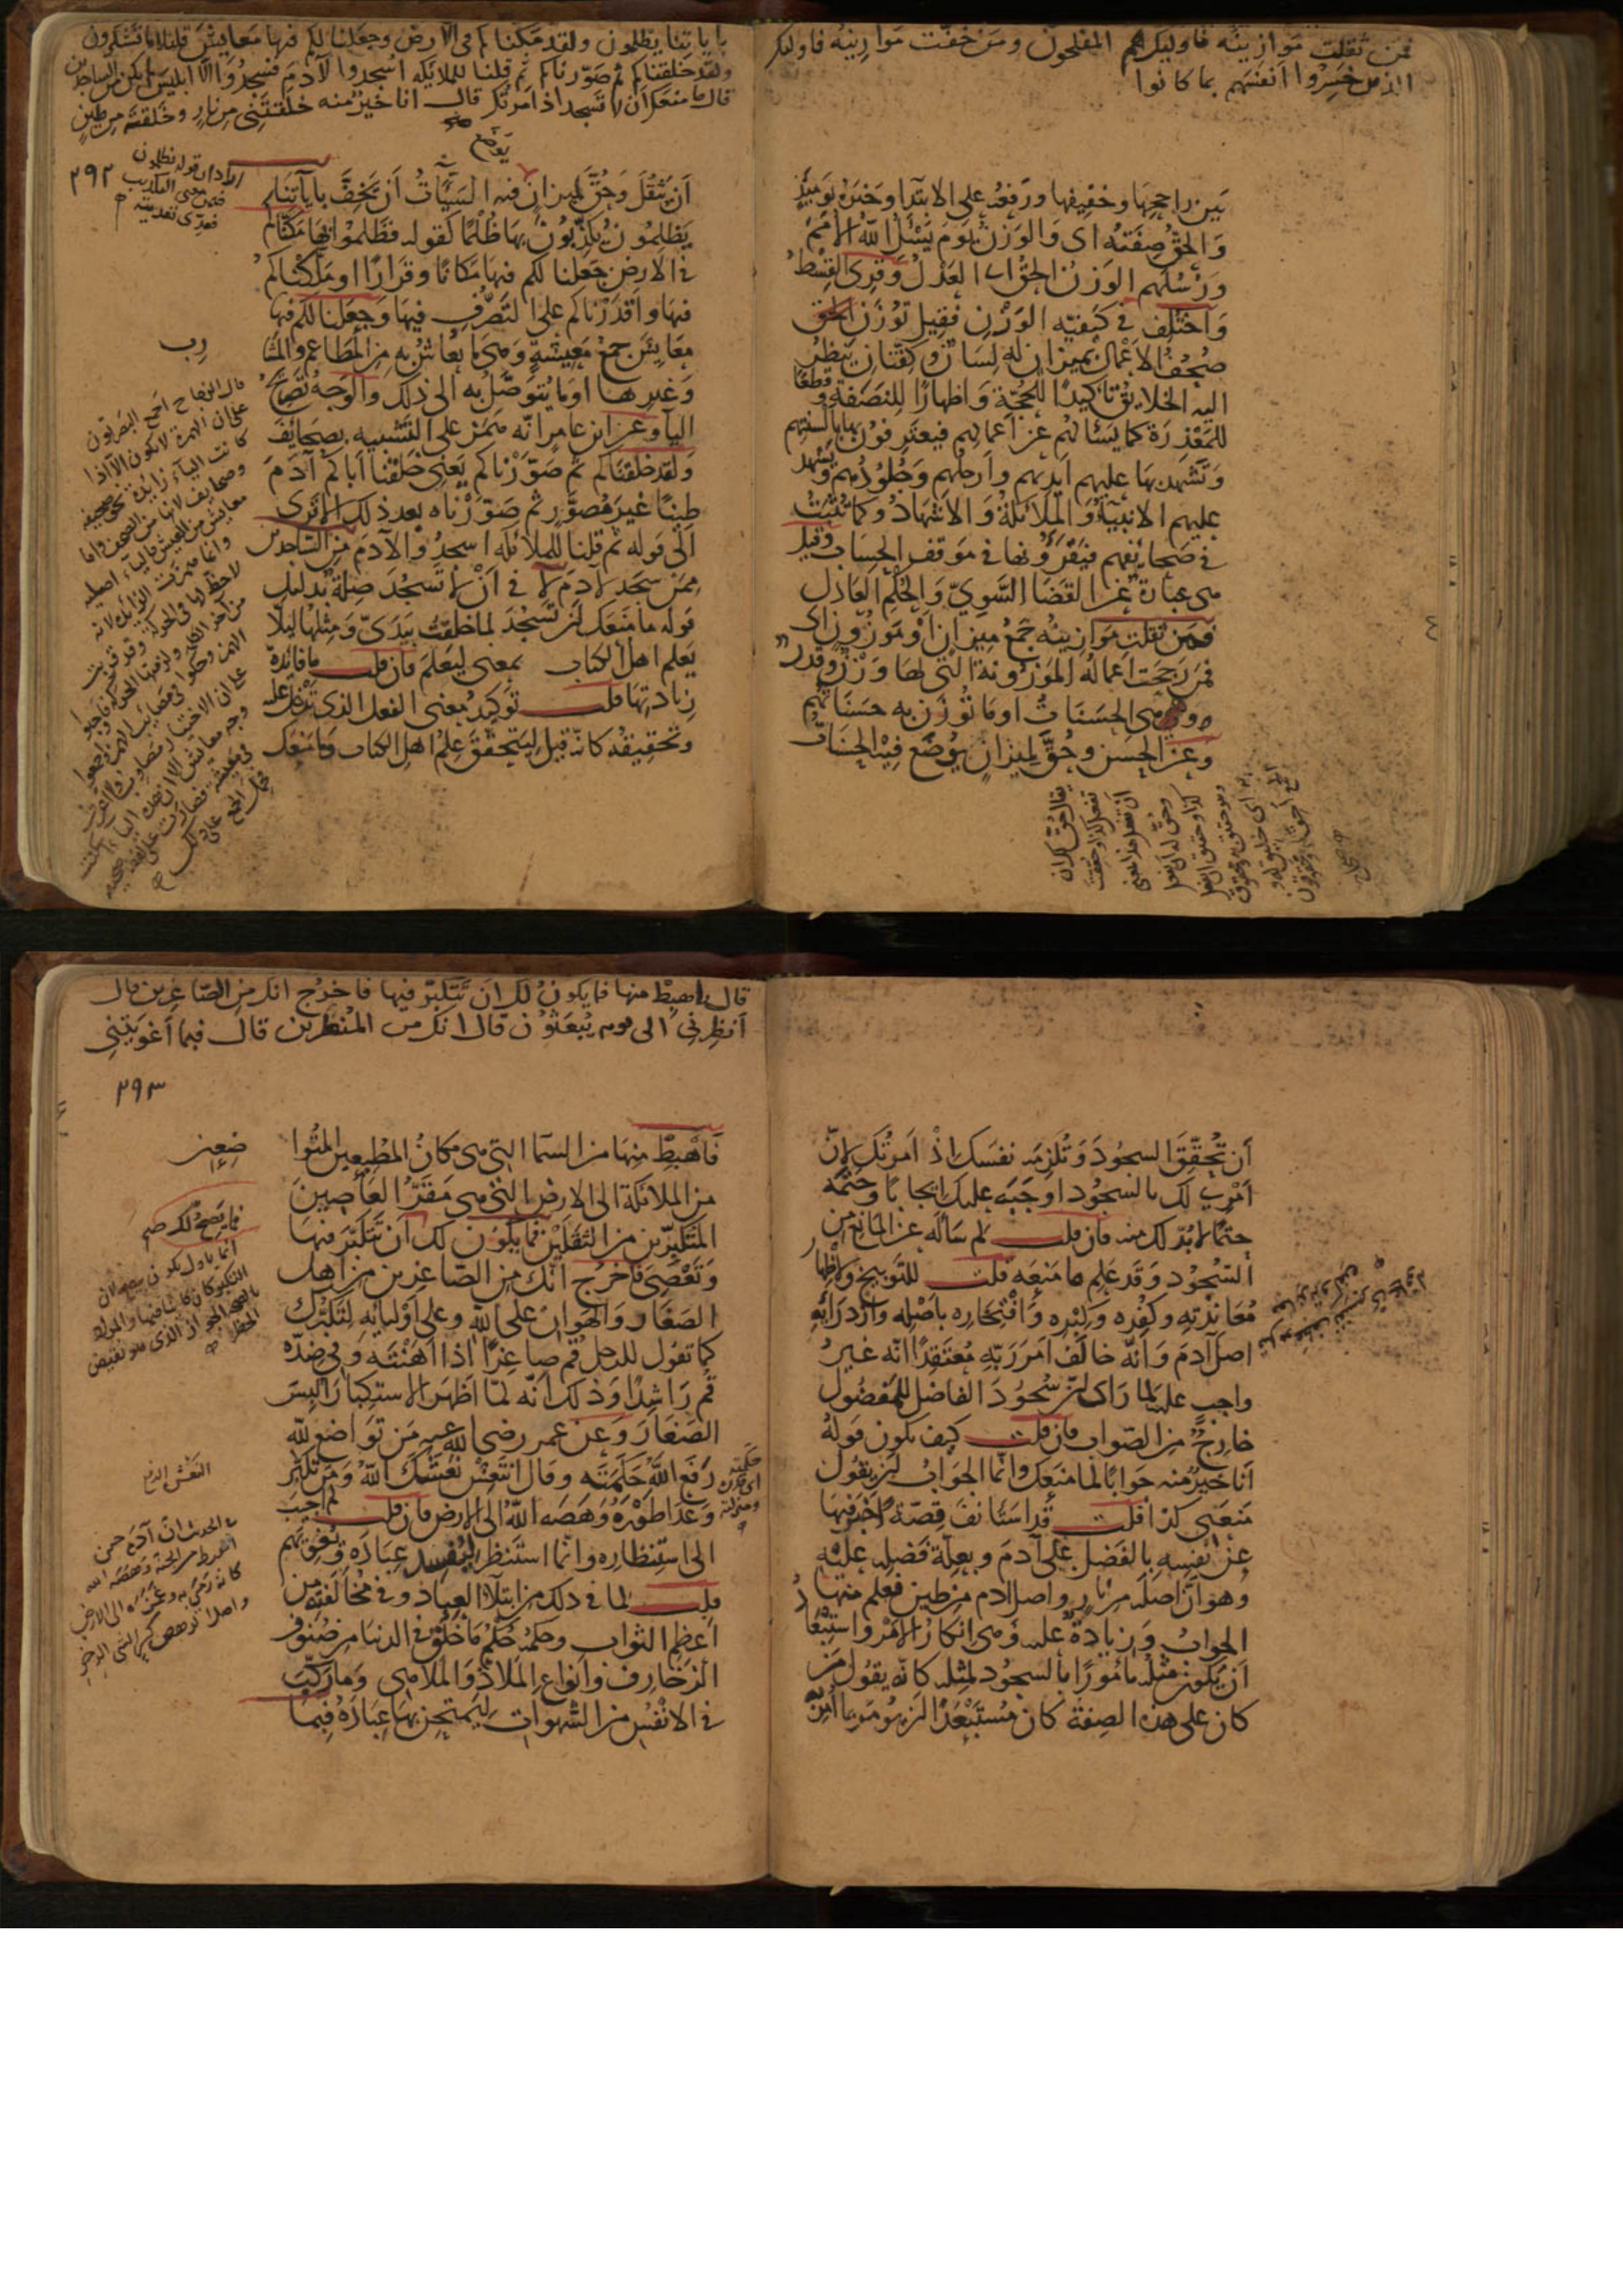 فمن ثقلت موازينه فاوليك هم المفلحون ومن خفت موازينه فاوليك
الذين خسروا انفسهم بما كانوا
بين راجحها وخفيفها ورفعه على الابتدا وخبره يوميذ
والحق صفته اى والوزن يوم يسئل الله الامم
ورسلهم الوزن الحق اى العدل وقرى القسط
واختلف فى كيفيه الوزن فقيل توزن
صحف الاعمال بميزان له لسان وكفتان ينظر
اليه الخلايق تاكيدا للحجة واظهارا للنصفة وقطعا
للمعذرة كما يسألهم عن اعمالهم فيعترفون بها بالسنتهم
وتشهد بها عليهم ايديهم وارجلهم وجلودهم وتشهد
عليهم الانبيآء والملائكة والاشهاد وكما تثبت
فى صحائفهم فيقرؤنها فى موقف الحساب وقيل
هى عبارة عن القضا السوى والحكم العادل
فمن ثقلت موازينه جمع ميزان او موزون اى
فمن رجحت اعماله الموزونة التى لها وزن وقدر
وهى الحسنات او ما توزن به حسناتهم
وعن الحسن وحق لميزان يوضع فيه الحسنات
يقال حق لك ان
تفعل كذا وحققت
ان تفعل هذا بمعنى
وحق له ان يفعل
كذا وهو حقيق ان يفعل
صحاح
باياتنا يظلمون ولقد مكناكم فى الارض وجعلنا لكم فيها معايش قليلا ما تشكرون
ولقد خلقناكم ثم صورناكم ثم قلنا للملائكه اسجدوا لآدم فسجدوا الا ابليس لم يكن من الساجدين
قال ما منعك ان لا تسجد اذ امرتك قال انا خير منه خلقتنى من نار وخلقته من طين
يوضع
٢٩٢
اراد ان قوله يظلمون
ضمن معنى التكذيب
فعدى تعديته
ان يثقل وحق لميزان فيه السيئات ان يخف باياتنا
يظلمون يكذبون بها ظلما كقوله فظلموا بها مكناكم
فى الارض جعلنا لكم فيها مكانا وقرارا او ملكناكم
فيها واقدرناكم على التصرف فيها وجعلنا لكم فيها
معايش جمع معيشة وهى ما يعاش به من المطاعم والمشا
رب
وغيرها او ما يتوصل به الى ذلك والوجه تصريح
اليآء وعن ابن عامر انه همز على التشبيه بصحايف
ولقد خلقناكم ثم صورناكم يعنى خلقنا اباكم آدم
طينا غير مصور ثم صورناه بعد ذلك الا ترى
الى قوله ثم قلنا للملائكه اسجدوا لآدم من الساجدين
ممن سجد لآدم لا فى ان لا تسجد صلة بدليل
قوله ما منعك ان تسجد لما خلقت بيدى ومثلها ليلا
يعلم اهل الكتاب بمعنى ليعلم فان قلت ما فائدة
زيادتها قلت توكيد معنى الفعل الذى تدخل عليه
وتحقيقه كانه قيل ليتحقق علم اهل الكتاب وما منعك
ان تحقق السجود وتلزمه نفسك اذ امرتك لان
امرى لك بالسجود اوجبه عليك ايجابا وحتمه
حتما لا بد لك منه فان قلت لم ساله عن المانع من
السجود وقد علم ما منعه قلت للتوبيخ ولاظهار
معاندته وكفره وكبره وافتخاره باصله وازدرائه
اصل آدم وانه خالف امر ربه معتقدا انه غير
واجب عليه لما راى ان سجود الفاضل للمفضول
خارج من الصواب فان قلت كيف يكون قوله
انا خير منه جوابا لما منعك وانما الجواب ان يقول
منعنى كذا قلت قد استانف قصة اخبر فيها
عن نفسه بالفضل على آدم وبعلة فضله عليه
وهو ان اصله من نار واصل ادم من طين فعلم منها
الجواب وزيادة عليه وهى انكار الامر واستبعاد
ان يكون مثله مامورا بالسجود لمثله كانه يقول من
كان على هذه الصفة كان مستبعدا ان يؤمر بما امر به
قال فاهبط منها فما يكون لك ان تتكبر فيها فاخرج انك من الصاغرين قال
انظرنى الى يوم يبعثون قال انك من المنظرين قال فبما اغويتنى
٢٩٣
فاهبط منها من السمآ التى هى مكان المطيعين المتوا
ضعين
من الملائكة الى الارض التى هى مقر العاصين
المتكبرين من الثقلين فما يكون لك ان تتكبر فيها
فما يصح لك صح
وتعصى فاخرج انك من الصاغرين من اهل
الصغار والهوان على الله وعلى اوليائه لتكبرك
كما تقول للرجل قم صاغرا اذا اهنته وفى ضده
قم راشدا وذلك انه لما اظهر الاستكبار البس
الصغار وعن عمر رضى الله عنه من تواضع لله
رفع الله حكمته وقال انتعش نعشك الله ومن تكبر
وعدا طوره وهصه الله الى الارض فان قلت لم اجيب
الى استنظاره وانما استنظر ليفسد عباده ويغويهم
قلت لما فى ذلك من ابتلآء العباد وفى مخالفته من
اعظم الثواب وحكمه حكم ما خلق فى الدنيا من صنوف
الزخارف وانواع الملاذ والملاهى وما ركب
فى الانفس من الشهوات ليمتحن بها عباده فبما
حكمته
اى قدره
ومنزلته
فى الحديث ان آدم حين
اهبط من الجنة وهصه الله